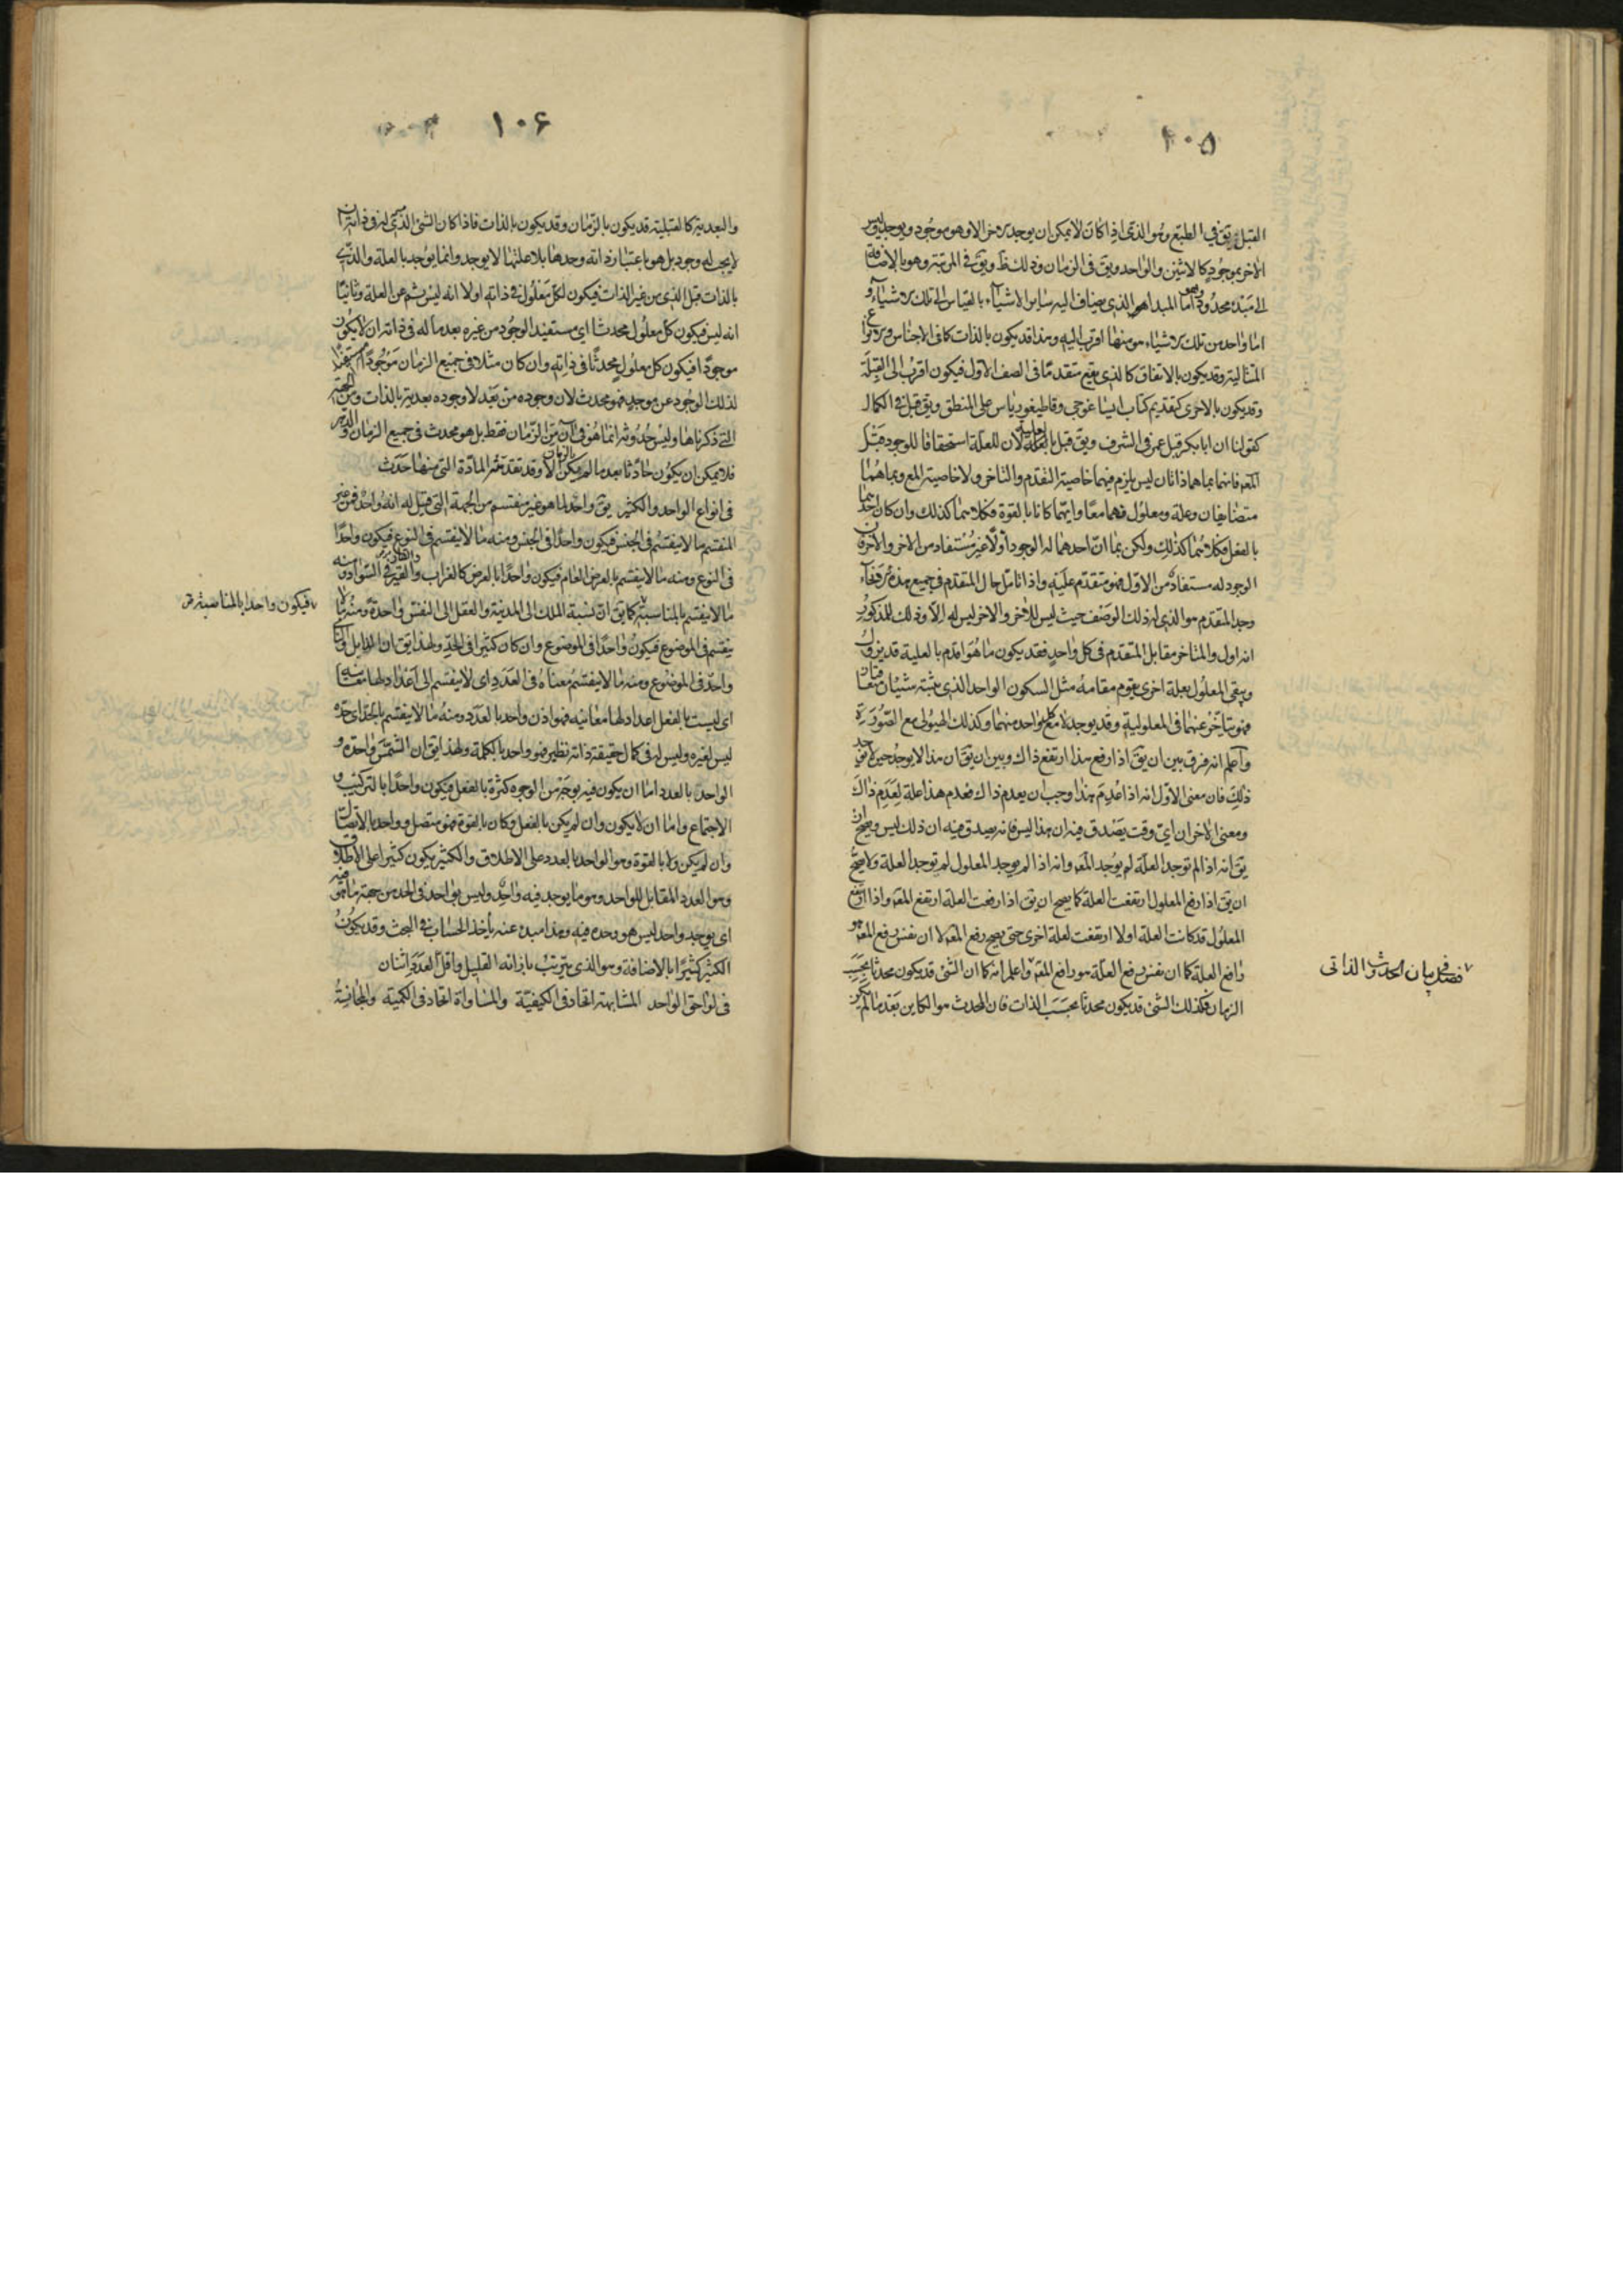 ١٠۵
القبل يق في الطبع وهو الذي اذا كان لا يمكن ان يوجد الاخر الا وهو موجود ويوجد وليس
الاخر بموجود كالاثنين والواحد ويق في الزمان وذلك ظ ويق في المرتبة وهو بالاضافة
الى مبدء محدود وهو اما المبدا هو الذي يضاف اليه سائر الاشياء بالقياس الى تلك الاشياء و
اما واحد من تلك الاشياء هو منها اقرب اليه وهذا قد يكون بالذات كما في الاجناس والانواع
المتتالية وقد يكون بالاتفاق كالذي يقع متقدما في الصف الاول فيكون اقرب الى القبلة
وقد يكون بالاحرى كتقديم كتاب ايساغوجي وقاطيغورياس على المنطق ويق قبل في الكمال
كقولنا ان ابا بكر قبل عمر في الشرف ويق قبل بالعلية لان للعلة استحقاقا للوجود قبل
المع فانهما بما هما ذاتان ليس يلزم فيهما خاصية التقدم والتاخر ولا خاصية المع وبما هما
متضايفان وعلة ومعلول فهما معا وايهما كانا بالقوة فكلاهما كذلك وان كان احدهما
بالفعل فكلاهما كذلك ولكن بما ان احدهما له الوجود اولا غير مستفاد من الاخر والاخر فان
الوجود له مستفاد من الاول فهو متقدم عليه واذا تامل حال المتقدم في جميع هذه الانحاء
وجد المتقدم هو الذي له ذلك الوصف حيث ليس للاخر والاخر ليس له الا وذلك للمذكور
انه اول والمتاخر مقابل المتقدم في كل واحد فقد يكون ما هو اقدم بالعلية قد يزول
ويبقى المعلول بعلة اخرى يقوم مقامه مثل السكون الواحد الذي يثبته شيئان متعاقبان
فهو متاخر عنهما في المعلولية وقد يوجد لا مع كل واحد منهما وكذلك الهيولى مع الصورة
واعلم انه فرق بين ان يق اذا رفع هذا ارتفع ذاك وبين ان يق ان هذا لا يوجد حين لا يوجد
ذلك فان معنى الاول انه اذا عدم هذا وجب ان يعدم ذاك فعدم هذا علة لعدم ذاك
ومعنى الاخر ان اي وقت يصدق فيه ان هذا ليس فانه يصدق فيه ان ذلك ليس ويصح ان
يق انه اذا لم توجد العلة لم يوجد المع وانه اذا لم يوجد المعلول لم توجد العلة ولا يصح
ان يق اذا رفع المعلول ارتفعت العلة كما يصح ان يق اذا رفعت العلة ارتفع المع واذا ارتفع
المعلول قد كانت العلة اولا ارتفعت لعلة اخرى حتى يصح رفع المع لا ان نفس رفع المع هو
رافع العلة كما ان نفس رفع العلة هو رافع المع واعلم انه كما ان الشئ قد يكون محدثا بحسب
الزمان فكذلك الشئ قد يكون محدثا بحسب الذات فان المحدث هو الكاين بعد ما لم يكن
فصل في بيان الحدوث الذاتي
١٠۶
والبعدية كالقبلية قد يكون بالزمان وقد يكون بالذات فاذا كان الشئ الذي له في ذاته ان
لا يجب له وجود بل هو باعتبار ذاته وحدها بلا علتها لا يوجد وانما يوجد بالعلة والذي
بالذات قبل الذي من غير الذات فيكون لكل معلول في ذاته اولا انه ليس ثم عن العلة وثانيا
انه ايس فيكون كل معلول محدثا اي مستفيد الوجود من غيره بعد ما له في ذاته ان لا يكون
موجودا فيكون كل معلول محدثا في ذاته وان كان مثلا في جميع الزمان موجودا مستفيدا
لذلك الوجود عن موجد فهو محدث لان وجوده من بعد لا وجوده بعدية بالذات ومن الجهة
التي ذكرناها وليس حدوثه انما هو في آن من الزمان فقط بل هو محدث في جميع الزمان والدهر
فلا يمكن ان يكون حادثا بعد ما لم يكن بالزمان الا وقد تقدمته المادة التي منها حدث
في انواع الواحد والكثير يق واحد لما هو غير منقسم من الجهة التي قيل له انه واحد فمن غير
المنقسم ما لا ينقسم في الجنس فيكون واحدا في الجنس ومنه ما لا ينقسم في النوع فيكون واحدا
في النوع ومنه ما لا ينقسم بالعرض العام فيكون واحدا بالعرض كالغراب والقير في السواد ومنه
ما لا ينقسم بالمناسبة كما يق ان نسبة الملك الى المدينة والعقل الى النفس واحدة ومنه ما لا
ينقسم في الموضوع فيكون واحدا في الموضوع وان كان كثيرا في الحد ولهذا يق ان الذابل والنامي
واحد في الموضوع ومنه ما لا ينقسم معناه في العدد اي لا ينقسم الى اعداد لها معانيه
اي ليست بالفعل اعداد لها معانيه فهو اذن واحد بالعدد ومنه ما لا ينقسم بالحد اي حده
ليس لغيره وليس له في كمال حقيقة ذاته نظير فهو واحد بالكلمة ولهذا يق ان الشمس واحدة و
الواحد بالعدد اما ان يكون فيه بوجه من الوجوه كثرة بالفعل فيكون واحدا بالتركيب و
الاجتماع واما ان لا يكون وان لم يكن بالفعل وكان بالقوة فهو متصل وواحد بالاتصال
وان لم يكن ولا بالقوة وهو الواحد بالعدد على الاطلاق والكثير يكون كثيرا على الاطلاق
وهو العدد المقابل للواحد وهو ما يوجد فيه واحد وليس بواحد في الحد من جهة ما هو فيه
اي يوجد واحد ليس هو وحده فيه وهذا مبدء عنه ياخذ الحساب في البحث وقد يكون
الكثير كثيرا بالاضافة وهو الذي يترتب بازائه القليل واقل العدد اثنان
في لواحق الواحد المشابهة اتحاد في الكيفية والمساواة اتحاد في الكمية والمجانسة
فيكون واحدا بالمناسبة